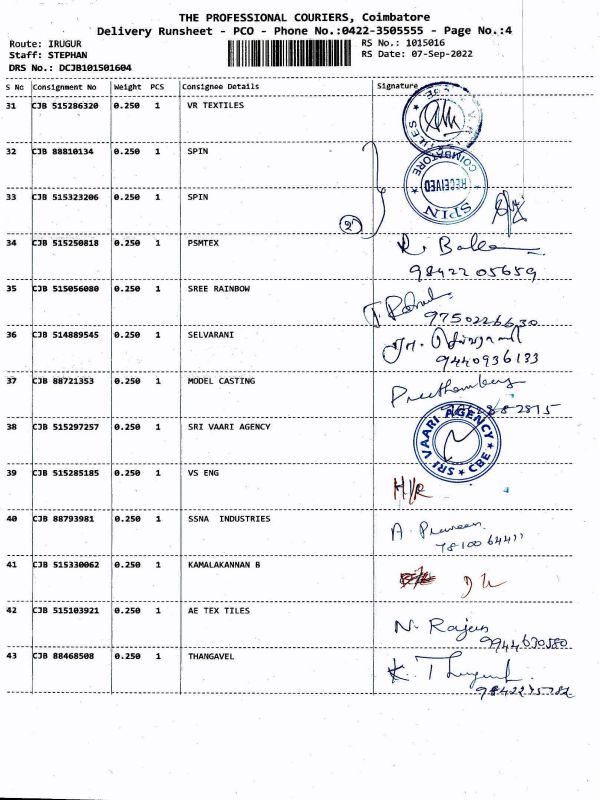 THE PROFESSIONAL COURIERS, Coimbatore
Delivery Runsheet - PCO - Phone No.:0422-3505555 - Page No.:4
Route: IRUGUR
RS No.: 1015016
Staff: STEPHAN
RS Date: 07-Sep-2022
DRS No.: DCJB101501604
S No Consignment No Weight PCS Consignee Details Signature
31 CJB 515286320 0.250 1 VR TEXTILES
32 CJB 88810134 0.250 1 SPIN
COIMBATORE
RECEIVED
SPIN
33 CJB 515323206 0.250 1 SPIN
2
34 CJB 515250818 0.250 1 PSMTEX
9842205659
35 CJB 515056080 0.250 1 SREE RAINBOW
9750226630
36 CJB 514889545 0.250 1 SELVARANI
9440936133
37 CJB 88721353 0.250 1 MODEL CASTING
38 CJB 515297257 0.250 1 SRI VAARI AGENCY
SRI VAARI AGENCY
CBE
39 CJB 515285185 0.250 1 VS ENG
40 CJB 88793981 0.250 1 SSNA INDUSTRIES
A. Praveen
41 CJB 515330062 0.250 1 KAMALAKANNAN B
42 CJB 515103921 0.250 1 AE TEX TILES
N. Rajan
9944630580
43 CJB 88468508 0.250 1 THANGAVEL